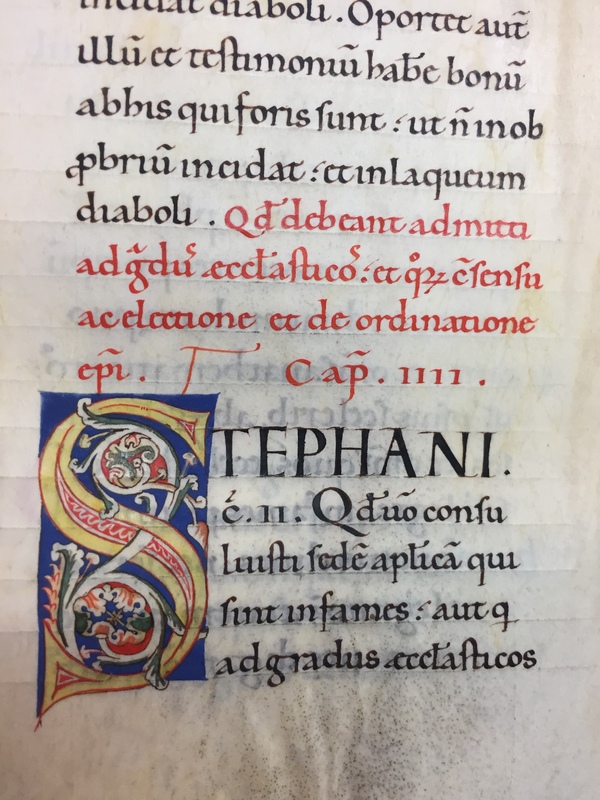 incidat diaboli. Oportet aut̄
illū et testimoniū hab̄e bonū
abhis quiforis sunt: ut n̄ inob
ꝓbriū incidat: et inlaqueum
diaboli. Qđ debeant admitti
ad g̃dus eccl̄asticos: et quoꝝ c̄sensu
ac electione et de ordinatione
ep̄i. T Cap̄. IIII.
STEPHANI.
c̄. II. Qđ uō consu
luisti sedē apl̄icā qui
sint infames: aut q
ad gradus eccl̄asticos